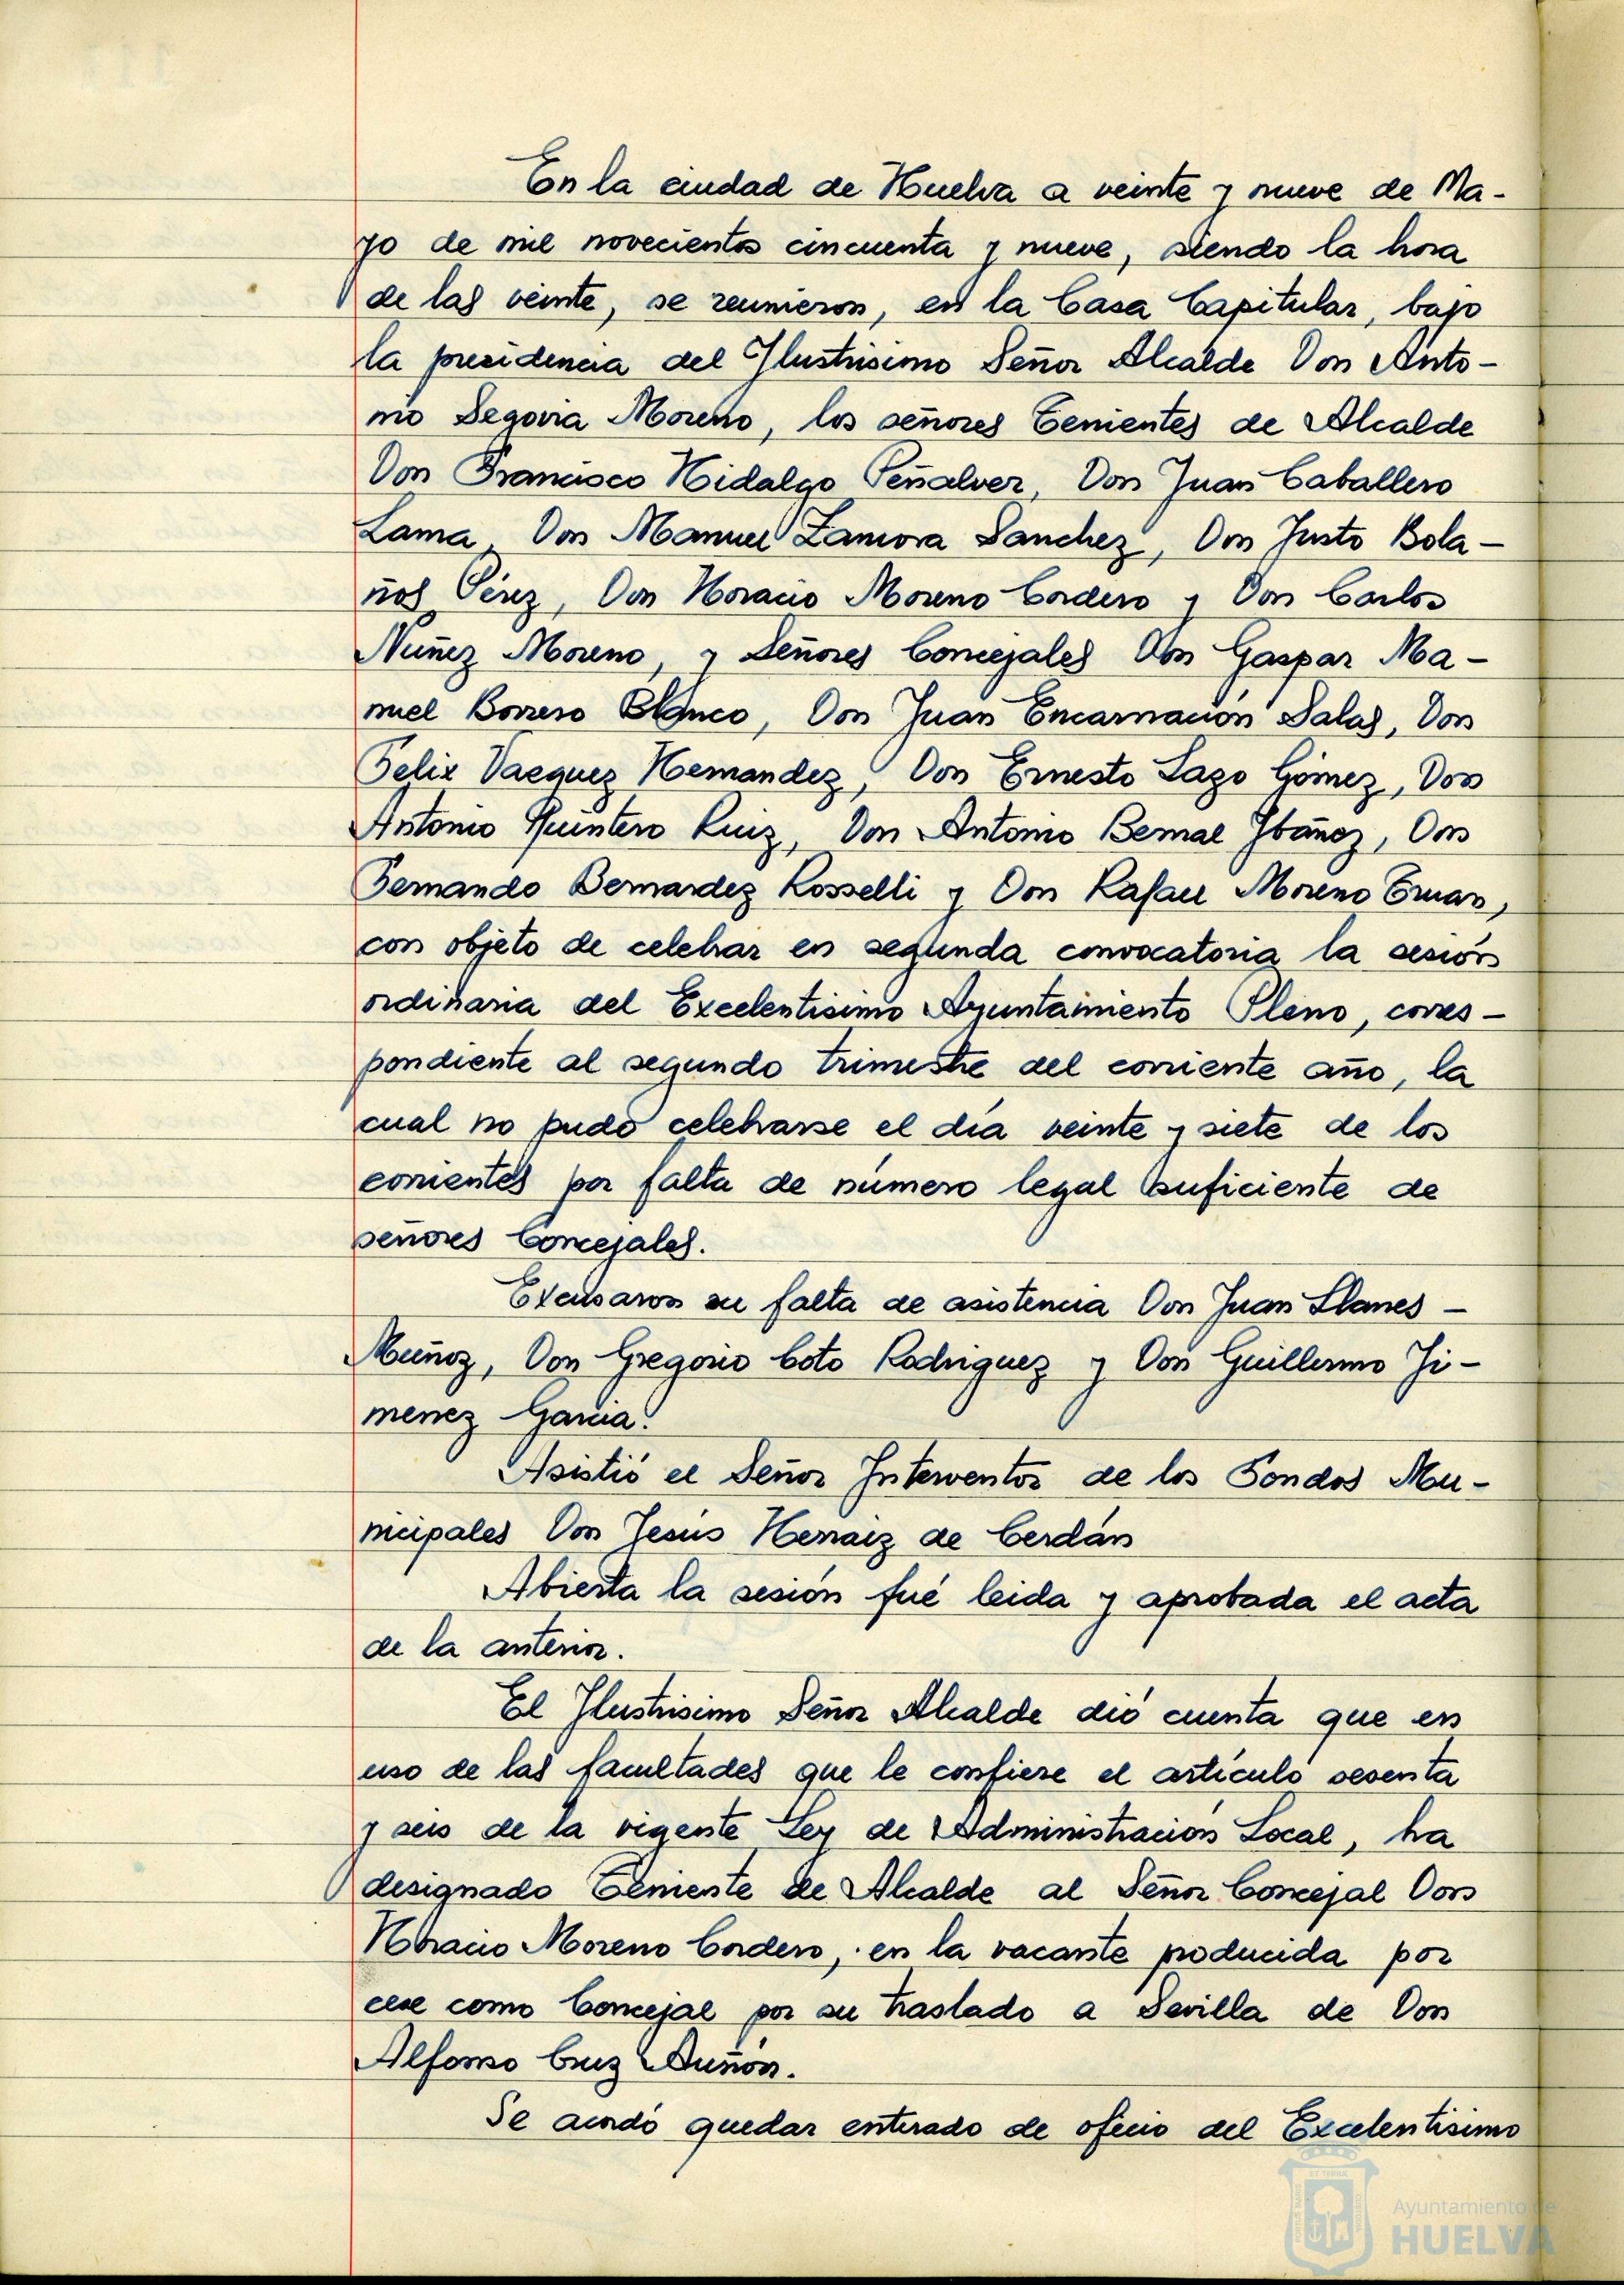 En la ciudad de Huelva a veinte y nueve de Ma-
yo de mil novecientos cincuenta y nueve, siendo la hora
de las veinte, se reunieron, en la Casa Capitular, bajo
la presidencia del Ilustrisimo Señor Alcalde Don Anto-
nio Segovia Moreno, los señores Tenientes de Alcalde
Don Francisco Hidalgo Peñalver, Don Juan Caballero
Lama, Don Manuel Zamora Sanchez, Don Justo Bola-
ños Pérez, Don Horacio Moreno Cordero y Don Carlos
Nuñez Moreno, y Señores Concejales Don Gaspar Ma-
nuel Borrero Blanco, Don Juan Encarnación Salas, Don
Felix Vazquez Hernandez, Don Ernesto Lazo Gómez, Don
Antonio Quintero Ruiz, Don Antonio Bernal Ybañez, Don
Fernando Bernardez Rosselli y Don Rafael Moreno
con objeto de celebrar en segunda convocatoria la sesión
ordinaria del Excelentisimo Ayuntamiento Pleno, corres-
pondiente al segundo trimestre del corriente año, la
cual no pudo celebrarse el día veinte y siete de los
corrientes por falta de número legal suficiente de
señores Concejales.
Excusaron su falta de asistencia Don Juan Llanes -
Muñoz, Don Gregorio Coto Rodriguez y Don Guillermo Ji-
menez Garcia.
Asistió el Señor Interventor de los Fondos Mu-
nicipales Don Jesús Hernaiz de Cerdán
Abierta la sesión fué leida y aprobada el acta
de la anterior.
El Ilustrisimo Señor Alcalde dió cuenta que en
uso de las facultades que le confiere el artículo sesenta
y seis de la vigente Ley de Administración Local, ha
designado Teniente de Alcalde al Señor Concejal Don
Horacio Moreno Cordero, en la vacante producida por
cese como Concejal por su traslado a Sevilla de Don
Alfonso Cruz Auñón.
Se acordó quedar enterado de oficio del Excelentisimo
Ayuntamiento de
HUELVA